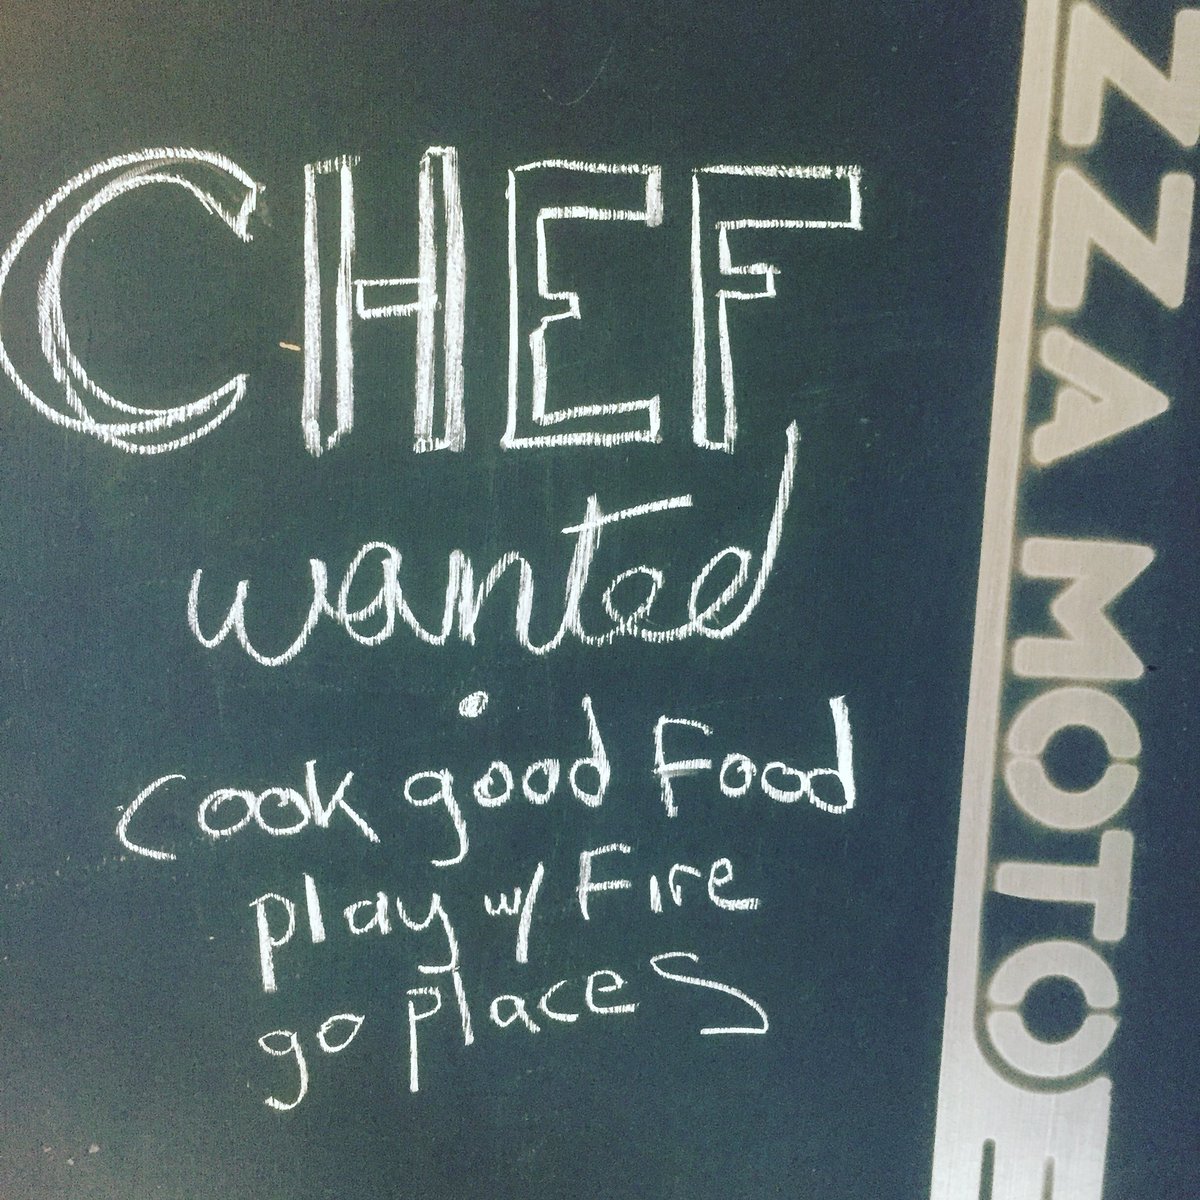 CHEF
wanted
cook good Food
play w/ Fire
go places
ZZA MOTO